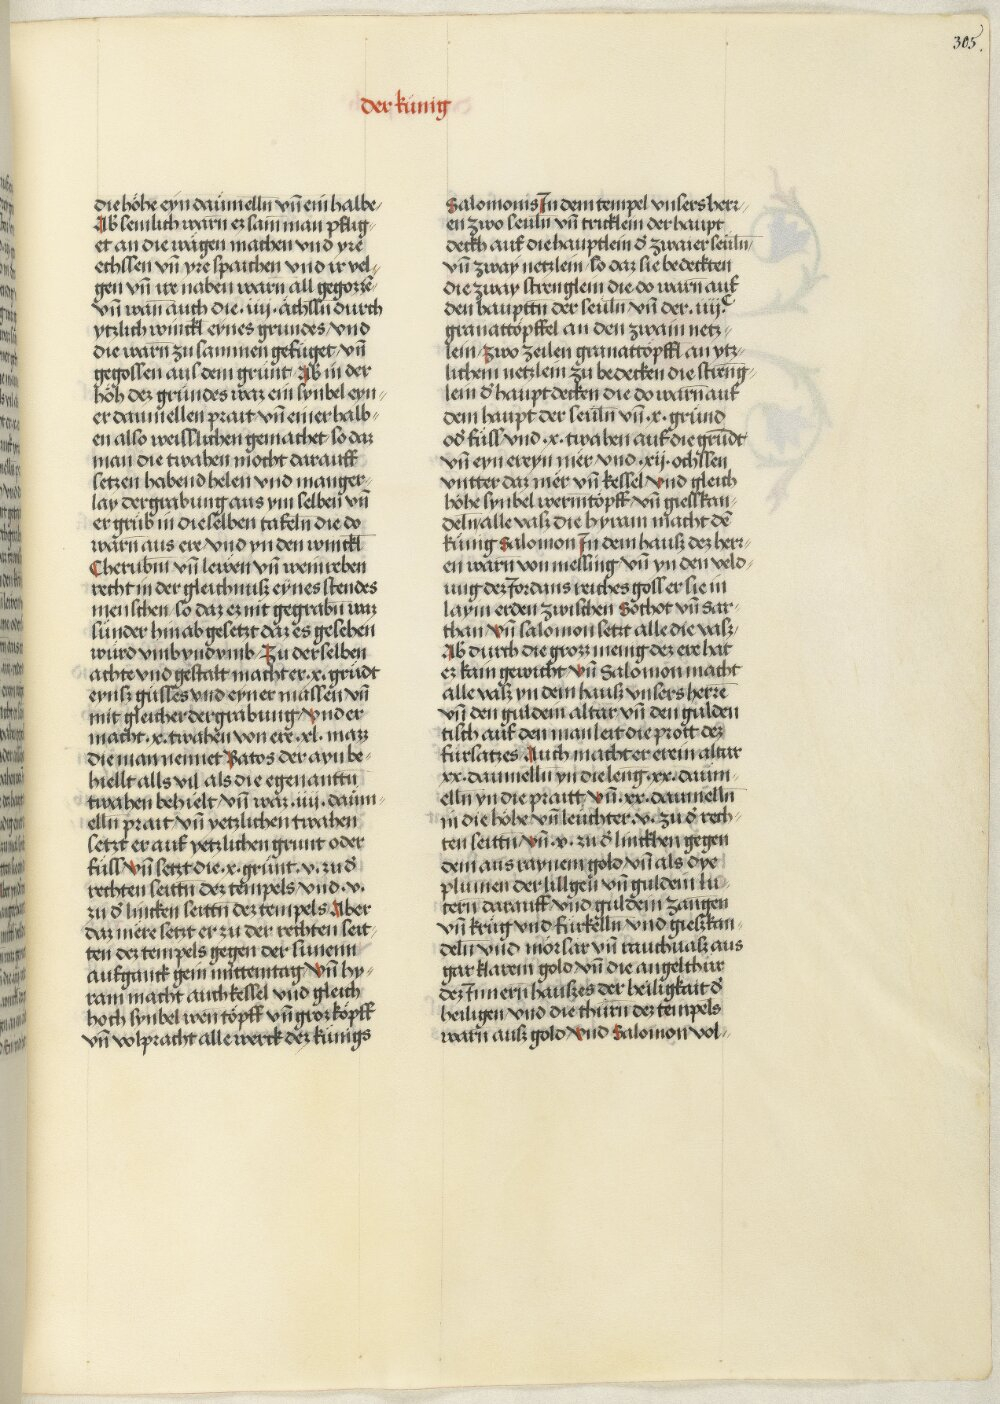 305.
der künig
die höhe eyn daümelln vn̄ ein halbe⸗
Ab semlich warn ez sam man pfligt⸗
et an die wägen machen vnd yre
echssen vn̄ yre spaichen vnd ir vel⸗
gen vn̄ ire naben warn all gegozzē⸗
vn̄ wan auch die ·iiij· ächssn durch
ytzlich winckl eynes grundes/ vnd
die warn zu sammen gefüget/ vn̄
gegossen aus dem grunt/ Ab in der
höh dez grundes waz ein synbel eyn⸗
er daumellen prait vn̄ einer halb⸗
en also weisslichen gemachet so daz
man die twahen mocht darauff
setzen habend helen vnd manger⸗
lay dergrabung aus ym selben vn̄
er grub in die selben tafeln die do
warn aus ere/ vnd yn den winckl
Cherubin vn̄ lewen vn̄ weinreben
recht in der gleichnusz eynes stendes
menschen/ so daz ez nit gegrabn waz
sunder hin ab gesetzt daz es gesehen
würd vmb vnd vmb/ Zu der selben
achte vnd gestalt macht er ·x· grüdt
eynsz gusses vnd eyner massen vn̄
mit gleicher dergrabung/ vnd er
macht ·x· twahen von ere ·xl· mazz
die man nennet Batos der ayn be⸗
hiellt alls vil als die egenanttn
twahen behielt/ vn̄ war ·iiij· daüm⸗
elln prait vn̄ yetzlichen twahen
setzt er auf yetzlichen grunt oder
füss/ vn̄ setzt die ·x· grünt ·v· zu d̄
rechten seittn dez tempels/ vnd ·v·
zu d̄ lincken seittn dez tempels Aber
daz mere setzt er zu der rechten seit⸗
ten dez tempels gegen der sunenn
aufganck gein mittemtag/ vn̄ hy⸗
ram macht auch kessel vnd gleich
hoch synbel wen töpff vn̄ groz köpff
vn̄ volpracht alle werck dez künigs
Salomonis In dem tempel vnsers herr⸗
en zwo seuln vn̄ tricklein der haupt
deckh auf die hauptlein d̄ zwaier seuln/
vn̄ zway netzlein/ so daz sie bedeckten
die zway strenglein die do warn auf
den haupttn der seuln/ vn̄ der ·iiijᶜ
granattöpffel an den zwain netz⸗
lein/ zwo zeilen granattöpffl an ytz⸗
lichem netzlein zu bedecken die streng⸗
lein d̄ haupt decken die do warn auf
dem haupt der seuln vn̄ ·x· grund
od̄ füss/ vnd ·x· twahen auf die grūdt
vn̄ eyn ereyn mer/ vnd ·xij· ochssen
vntter daz mer vn̄ kessel/ vnd gleich
höhe synbel werm töpff/ vn̄ giesskan⸗
deln/ alle vasz die hyram macht dē
künig Salomon In dem hausz dez herr⸗
en warn von messing/ vn̄ yn den veld⸗
ung dez Jordans reiches goss er sie in
laym erden zwischen Sochot vn̄ Sar⸗
than/ vn̄ salomon setzt alle die vasz/
Ab durch die grozz menig dez ere hat
ez kain gewicht/ vn̄ Salomon macht
alle vasz yn dem hausz vnsers herrē
vn̄ den guldem altar vn̄ den gulden
tisch auf den man leit die prott dez
fürsatzes/ Auch macht er erein altar
xx· daumelln yn die leng ·xx· daüm⸗
elln yn die praitt/ vn̄ ·xx· daumelln
in die höhe/ vn̄ leuchter ·v· zu d̄ rech⸗
ten seittn/ vn̄ ·v· zu d̄ linckhen gegen
dem aus raynem gold/ vn̄ als dye
plumen der lillgen vn̄ guldein lu⸗
cern darauff/ vnd guldein zangen
vn̄ krüg vnd fürkelln/ vnd gieszkan⸗
deln vnd mörsar vn̄ rauchuasz aus
gar klarem gold/ vn̄ die angel thür
dez Innern hauszes der heiligkait d̄
heiligen/ vnd die thürn dez tempels
warn ausz gold/ vnd Salomon vol⸗